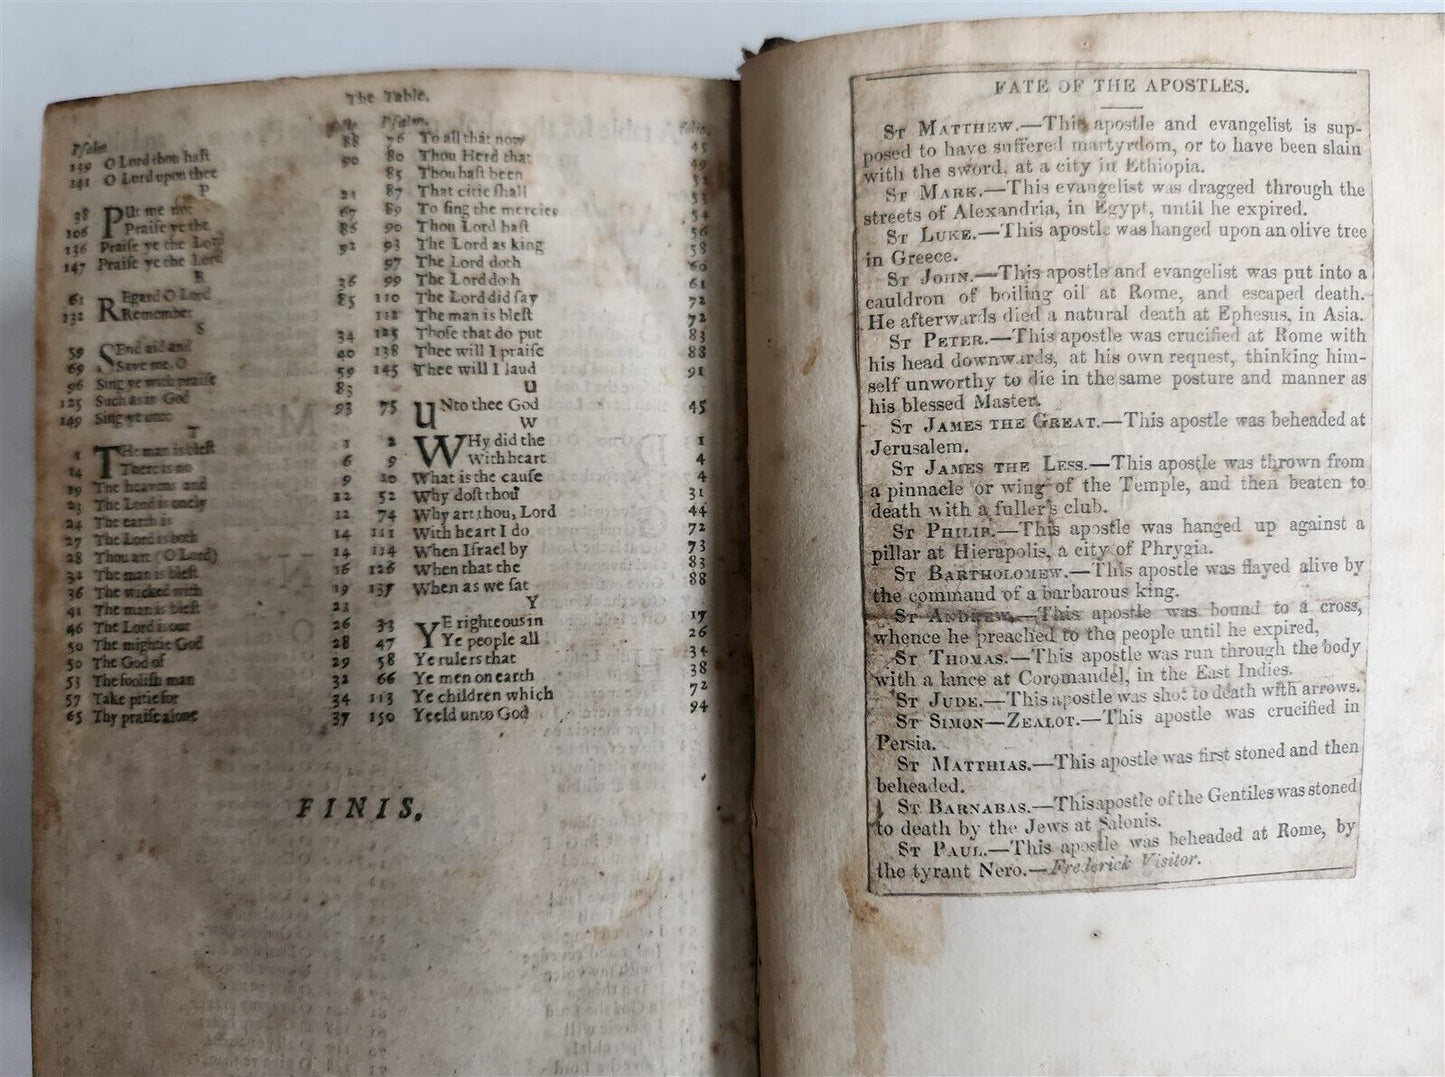 The Table.
Psalm
139 O Lord thou hast 88
141 O Lord upon thee 90
P
38 PUt me not 21
106 Praise ye the 67
136 Praise ye the Lord 86
147 Praise ye the Lord 92
R
61 REgard O Lord 36
132 Remember 85
S
59 SEnd aid and 34
69 Save me, O 40
96 Sing ye with praise 59
125 Such as in God 83
149 Sing ye unto 93
T
1 THe man is blest 1
14 There is no 6
19 The heavens and 9
23 The Lord is onely 12
24 The earth is 12
27 The Lord is both 14
28 Thou art (O Lord) 14
32 The man is blest 16
36 The wicked with 19
41 The man is blest 23
46 The Lord is our 26
50 The mightie God 28
50 The God of 29
53 The foolish man 32
57 Take pitie for 34
65 Thy praise alone 37
Psalm. folio,
76 To all that now 45
80 Thou Herd that 49
85 Thou hast been 52
87 That citie shall 53
89 To sing the mercies 54
90 Thou Lord hast 56
93 The Lord as king 58
97 The Lord doth 60
99 The Lord doth 61
110 The Lord did say 72
112 The man is blest 72
125 Those that do put 83
138 Thee will I praise 88
145 Thee will I laud 91
U
75 UNto thee God 45
W
2 WHy did the 1
9 With heart 4
10 What is the cause 4
52 Why dost thou 31
74 Why art thou, Lord 44
111 With heart I do 72
114 When Israel by 73
126 When that the 83
137 When as we sat 88
Y
33 YE righteous in 17
47 Ye people all 26
58 Ye rulers that 34
66 Ye men on earth 38
113 Ye children which 72
150 Yeeld unto God 94
FINIS.
FATE OF THE APOSTLES.
St Matthew.—This apostle and evangelist is sup-
posed to have suffered martyrdom, or to have been slain
with the sword, at a city in Ethiopia.
St Mark.—This evangelist was dragged through the
streets of Alexandria, in Egypt, until he expired.
St Luke.—This apostle was hanged upon an olive tree
in Greece.
St John.—This apostle and evangelist was put into a
cauldron of boiling oil at Rome, and escaped death.
He afterwards died a natural death at Ephesus, in Asia.
St Peter.—This apostle was crucified at Rome with
his head downwards, at his own request, thinking him-
self unworthy to die in the same posture and manner as
his blessed Master.
St James the Great.—This apostle was beheaded at
Jerusalem.
St James the Less.—This apostle was thrown from
a pinnacle or wing of the Temple, and then beaten to
death with a fuller's club.
St Philip.—This apostle was hanged up against a
pillar at Hierapolis, a city of Phrygia.
St Bartholomew.—This apostle was flayed alive by
the command of a barbarous king.
St Andrew.—This apostle was bound to a cross,
whence he preached to the people until he expired,
St Thomas.—This apostle was run through the body
with a lance at Coromandel, in the East Indies.
St Jude.—This apostle was shot to death with arrows.
St Simon—Zealot.—This apostle was crucified in
Persia.
St Matthias.—This apostle was first stoned and then
beheaded.
St Barnabas.—This apostle of the Gentiles was stoned
to death by the Jews at Salonis.
St Paul.—This apostle was beheaded at Rome, by
the tyrant Nero.—Frederick Visitor.